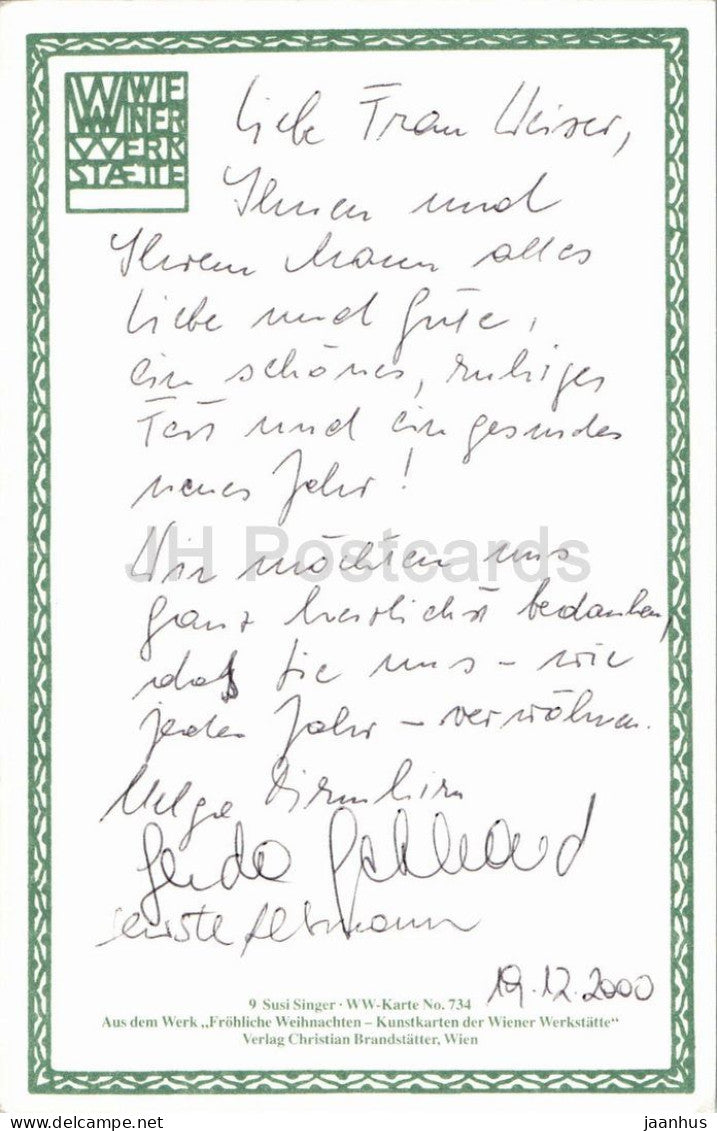 WIE
NER
WERK
STÆTTE
Liebe Frau Weiser,
Ihnen und
Ihrem Mann alles
Liebe und Gute,
ein schönes, ruhiges
Fest und ein gesundes
neues Jahr!
Wir möchten uns
ganz herzlichst bedanken,
daß Sie uns – wie
jedes Jahr – verwöhnen.
Helga
Gerda Gebhard
19.12.2000
9 Susi Singer · WW-Karte No. 734
Aus dem Werk „Fröhliche Weihnachten – Kunstkarten der Wiener Werkstätte“
Verlag Christian Brandstätter, Wien
JH Postcards
jaanhus